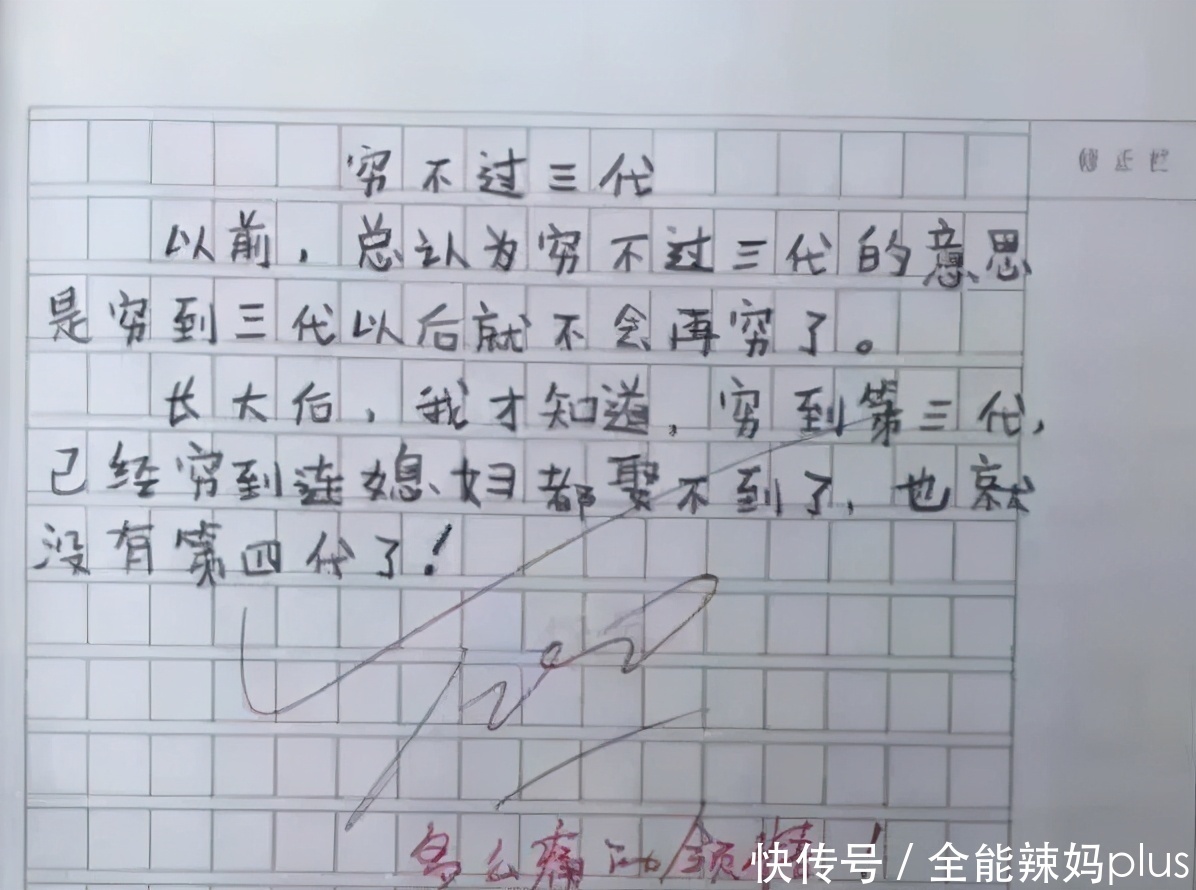 穷不过三代
修正栏
以前，总认为穷不过三代的意思
是穷到三代以后就不会再穷了。
长大后，我才知道，穷到第三代，
已经穷到连媳妇都娶不到了，也就
没有第四代了！
多么痛的领悟！
快传号 / 全能辣妈plus